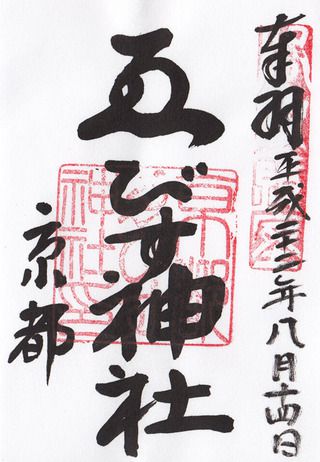 奉拝 平成二十二年八月十四日
ゑびす神社
京都